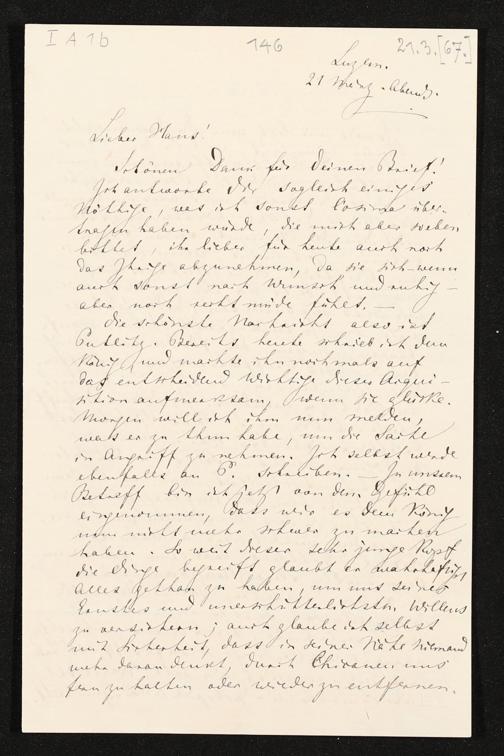 I A 1b 146 21.3.[67.]
Luzern.
21 März. Abends.
Lieber Hans!
Schönen Dank für Deinen Brief!
Ich antworte Dir sogleich einiges
Nöthige, was ich sonst Cosima über-
tragen haben würde, die mich aber soeben
bittet, ihr lieber für heute auch noch
das Ihrige abzunehmen, da sie sich – wenn
auch sonst nach Wunsch und ruhig –
aber noch recht müde fühlt. —
Die schönste Nachricht also ist
Putlitz. Bereits heute schrieb ich dem
König, und machte ihn nochmals auf
das entscheidend Wichtige dieser Acqui-
sition aufmerksam, wenn sie glücke.
Morgen will ich ihm nun melden,
was er zu thun habe, um die Sache
in Angriff zu nehmen. Ich selbst werde
ebenfalls an P. schreiben. — In unsrem
Betreff bin ich jetzt von dem Gefühl
eingenommen, dass wir es dem König
nun nicht mehr schwer zu machen
haben. So weit dieser sehr junge Kopf
die Dinge begreift glaubt er wahrhaftig
alles gethan zu haben, um uns seines
Ernstes und unerschütterlichsten Willens
zu versichern; auch glaube ich selbst
mit Sicherheit, dass in seiner Nähe Niemand
mehr daran denkt, durch Chicanen uns
fern zu halten oder wieder zu entfernen.